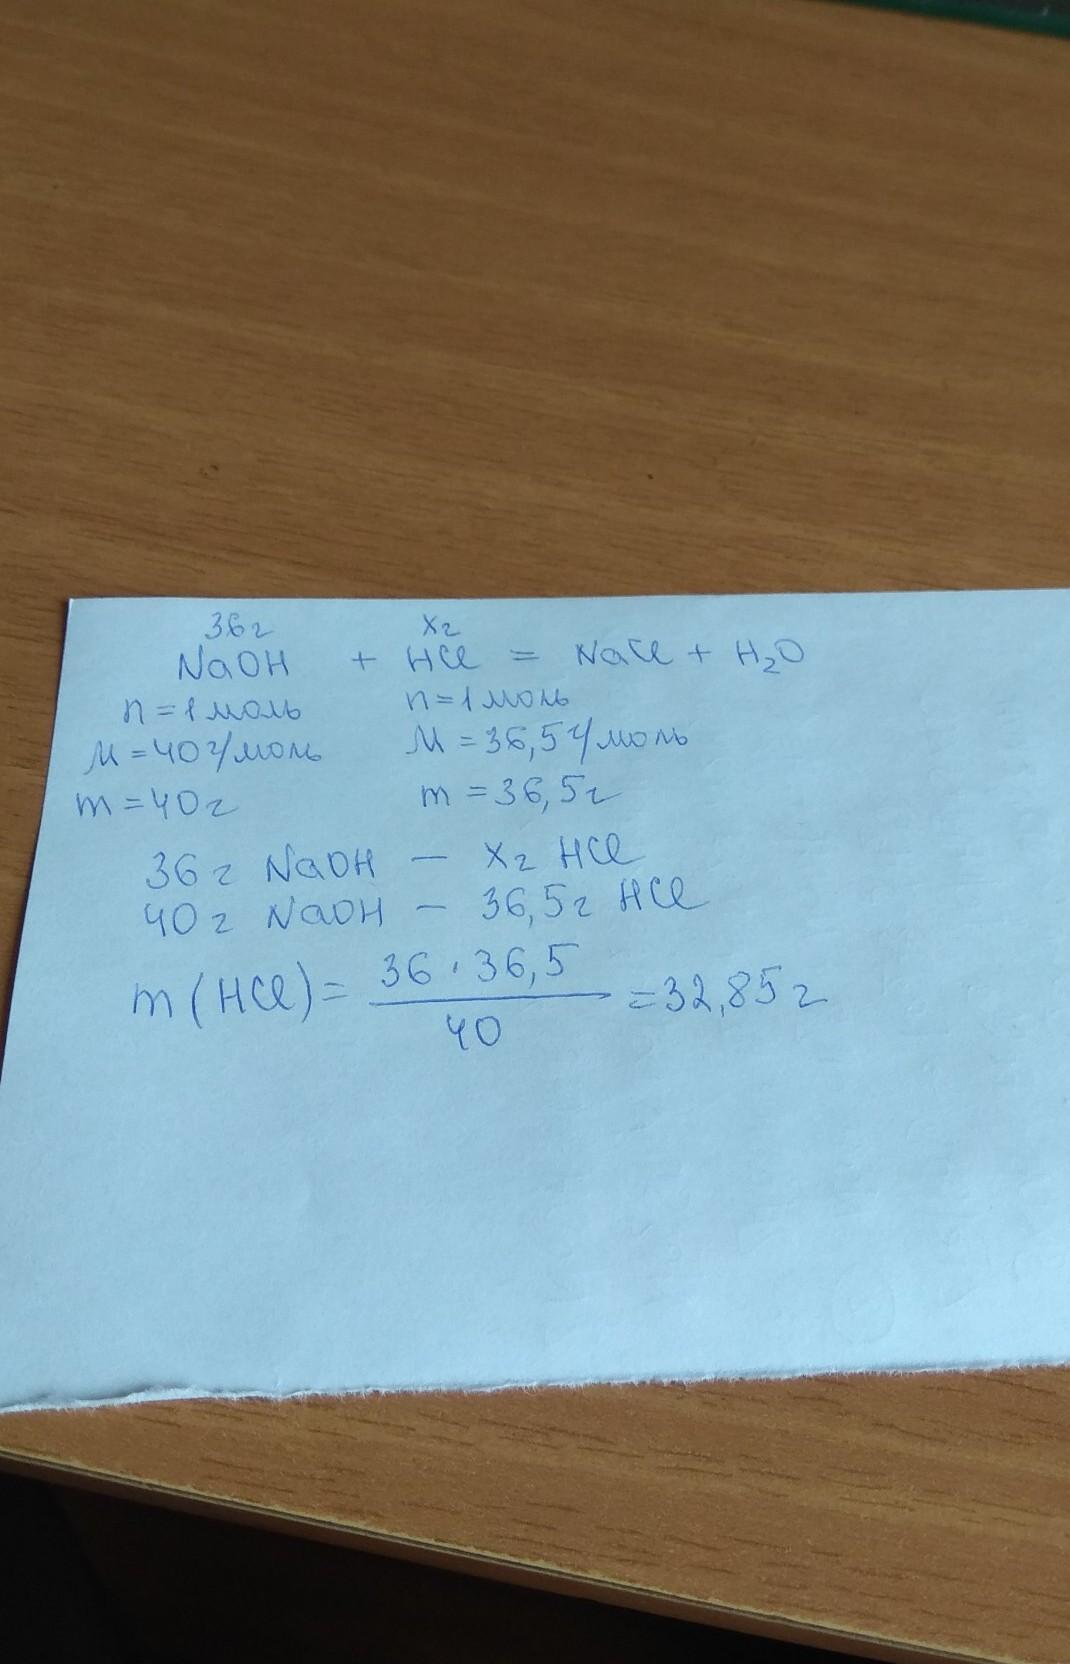 36г xг
NaOH + HCl = NaCl + H₂O
n = 1 моль n = 1 моль
M = 40 г/моль M = 36,5 г/моль
m = 40 г m = 36,5 г
36 г NaOH — xг HCl
40 г NaOH — 36,5 г HCl
m (HCl) = 36 · 36,5 / 40 = 32,85 г